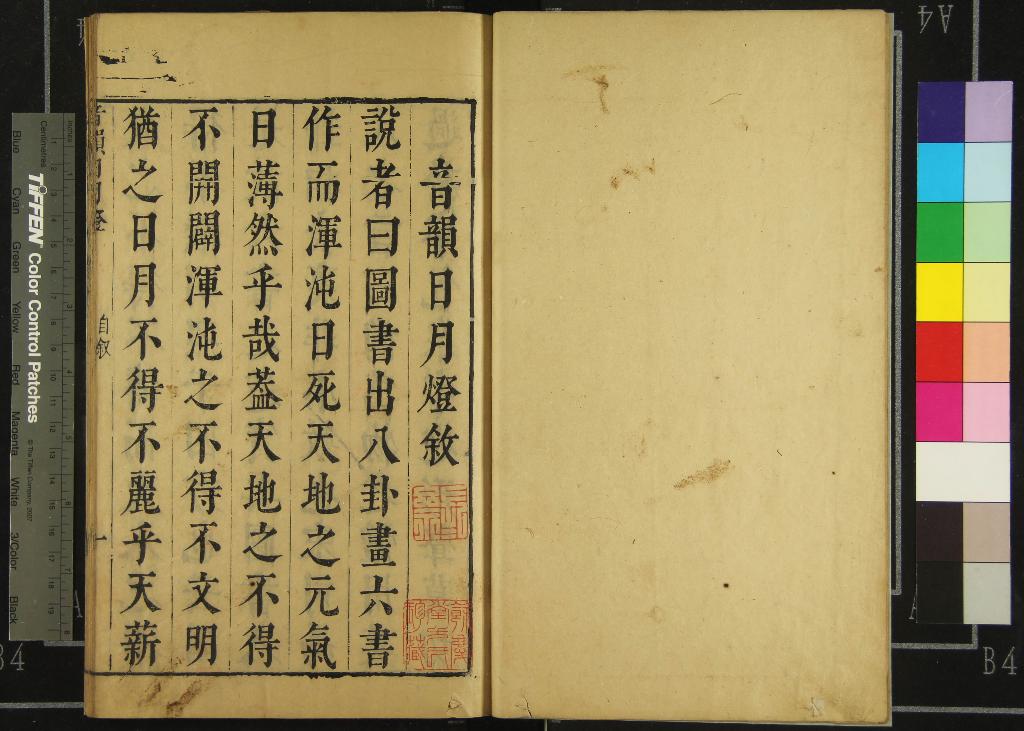 音韻日月燈敘
說者曰圖書出八卦畫六書
作而渾沌日死天地之元氣
日薄然乎哉葢天地之不得
不開闢渾沌之不得不文明
猶之日月不得不麗乎天薪
音韻日月燈
自敘
一
Inches
Centimetres
TIFFEN Color Control Patches
© The Tiffen Company, 2007
Blue
Cyan
Green
Yellow
Red
Magenta
White
3/Color
Black
A4
B4
B4